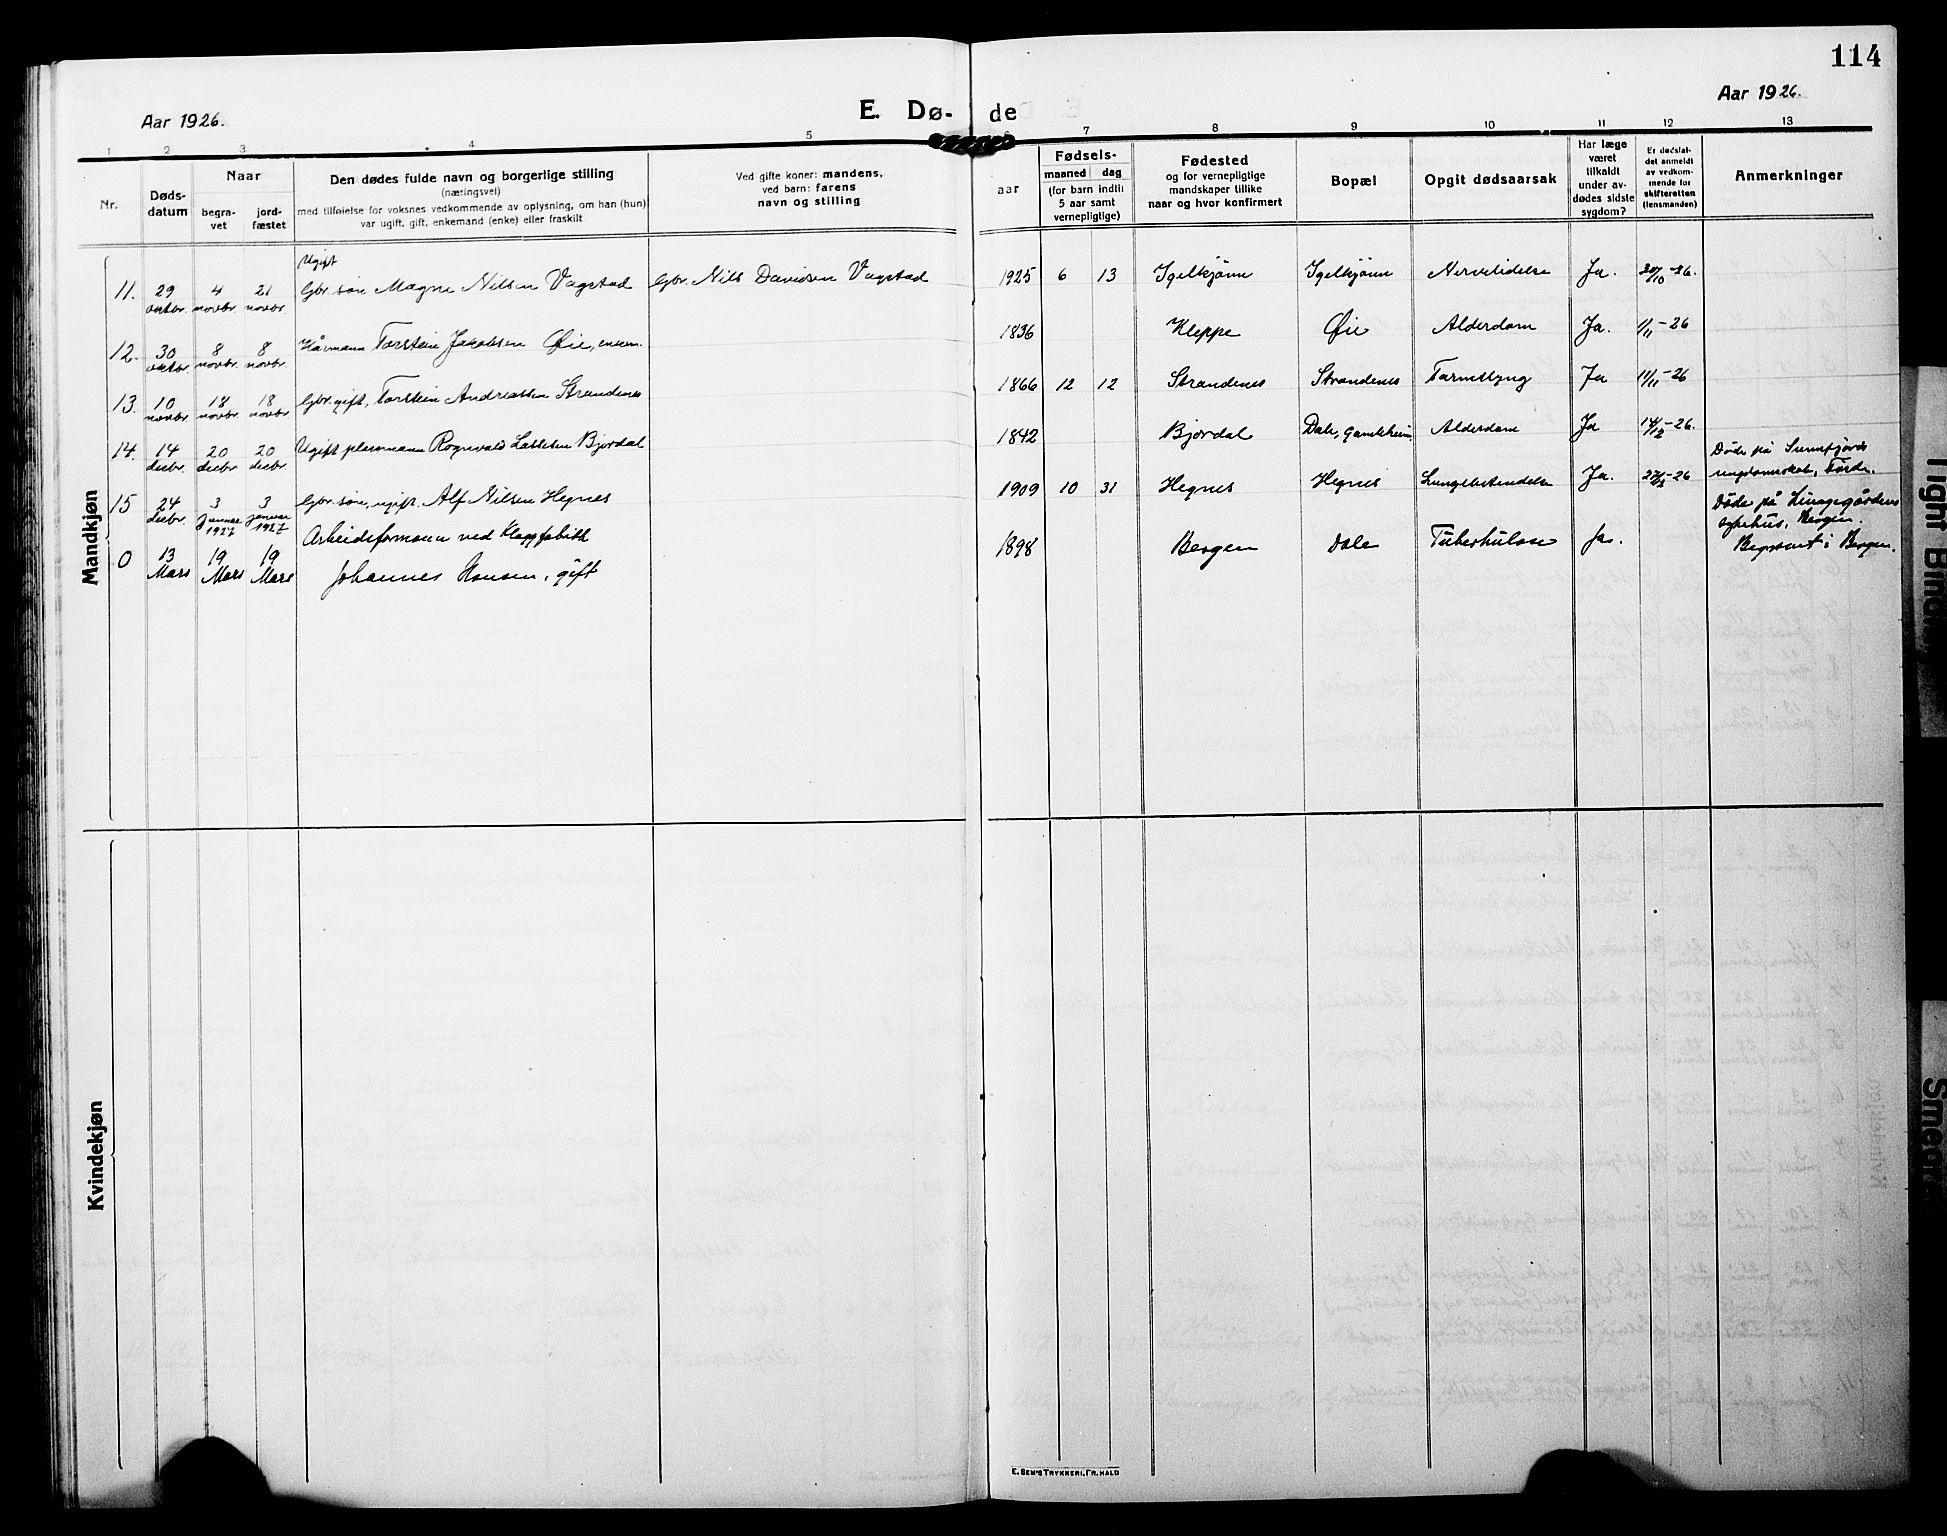 114
Aar 1926.
E. Dø- de
Aar 1926.
1 2 3 4 5 6 7 8 9 10 11 12 13
Nr.
Døds-
datum
Naar
begra-
vet
jord-
fæstet
Den dødes fulde navn og borgerlige stilling
(næringsvei)
med tilføielse for voksnes vedkommende av oplysning, om han (hun)
var ugift, gift, enkemand (enke) eller fraskilt
Ved gifte koner: mandens,
ved barn: farens
navn og stilling
aar
Fødsels-
maaned dag
(for barn indtil
5 aar samt
vernepligtige)
Fødested
og for vernepligtige
mandskaper tillike
naar og hvor konfirmert
Bopæl
Opgit dødsaarsak
Har læge
været
tilkaldt
under av-
dødes sidste
sygdom?
Er dødsfal-
det anmeldt
av vedkom-
mende for
skifteretten
(lensmanden)
Anmerkninger
Mandkjøn
Ugift
11. 29 oktbr. 4 novbr. 21 novbr. Gbr. søn Magne Nilsen Vagstad Gbr. Nils Davidsen Vagstad 1925 6 13 Igelkjønn Igelkjønn Nervelidelse Ja. 30/10-26.
12. 30 oktbr. 8 novbr. 8 novbr. Kårmann Torstein Jakobsen Øie, enkem. 1836 Kleppe Øie Alderdom Ja. 1/11-26
13. 10 novbr. 18 novbr. 18 novbr. Gbr. gift, Torstein Andreassen Strandenes 1866 12 12 Strandenes Strandenes Tarmslyng Ja 11/11-26
14. 14 decbr. 20 decbr. 20 decbr. Ugift plassmann Rognvald Lassesen Bjordal 1842 Bjordal Dale, Gamleheim Alderdom Ja 14/12-26.
15 24 decbr. 3 januar 1927 3 januar 1927 Gbr. søn, ugift, Alf Nilsen Hegnes 1909 10 31 Hegnes Hegnes Lungebetendelse Ja. 27/12-26
Døde på Sunnfjord
ungdomsskole, Førde.
0 13 Mars 19 Mars 19 Mars Arbeidsformann ved Klappfabrikk
Johannes Hansen, gift 1898 Bergen Dale Tuberkulose Ja.
Døde på Lungegårdens
sykehus, Bergen.
Begravet i Bergen.
Kvindekjøn
E. SEM'S TRYKKERI, FR.HALD
Tight Bind